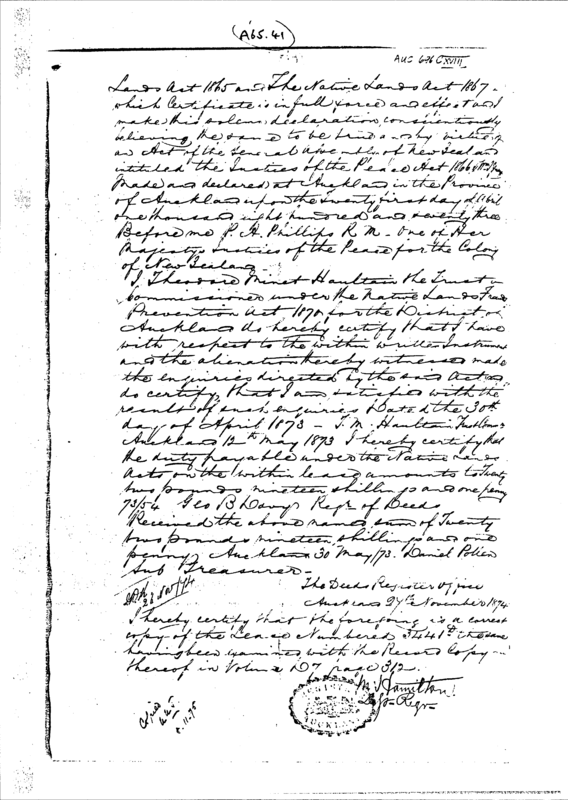 A65.41
AUC 636 CXVIII
Lands Act 1865 and The Native Lands Act 1867 -
which Certificate is in full force and effect and I
make this solemn declaration conscientiously
believing the same to be true and by virtue of
an Act of the General Assembly of New Zealand
intituled the Justices of the Peace Act 1866
Made and declared at Auckland in the Province
of Auckland upon the twenty first day of April
one thousand eight hundred and seventy three
Before me P. H. Phillips R.M. one of Her
Majestys Justices of the Peace for the Colony
of New Zealand -
I, Theodore Minet Haultain the Trust
Commissioner under the Native Lands Frauds
Prevention Act 1870, for the District of
Auckland do hereby certify that I have
with respect to the within written Instrument
and the alienation thereby witnessed made
the enquiries directed by the said Act and
do certify that I am satisfied with the
results of such enquiries Dated the 30th
day of April 1873 - T. M. Haultain
Auckland 12th May 1873 I hereby certify that
the duty payable under the Native Lands
Acts on the within lease amounts to Twenty
two pounds nineteen shillings and one penny
73/54 Geo B Davy Regr of Deeds
Received the above named sum of Twenty
two pounds nineteen shillings and one
penny, Auckland 30 May/73. Daniel
Sub Treasurer -
The Deeds Register Office
Auckland 27th November 1874
I hereby certify that the foregoing is a correct
copy of the Lease Numbered the same
having been examined with the Record Copy
thereof in Volume D7 page 312.
Hamilton
Regr
AUCKLAND